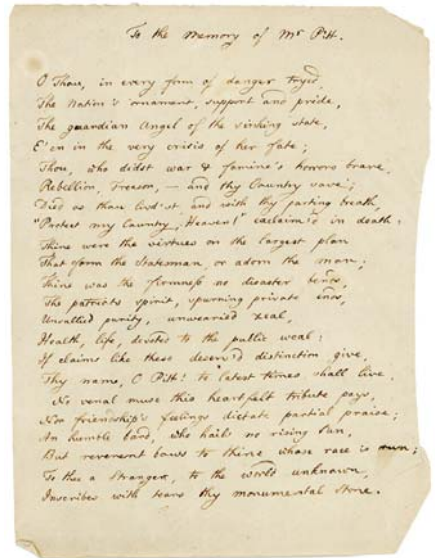 To the memory of Mr Pitt.
O Thou, in every form of danger tryed,
The Nation's ornament, support and pride,
The guardian Angel of the sinking state,
E'en in the very crisis of her fate;
Thou, who didst war & famine's horrors brave,
Rebellion, Treason, — and thy Country save;
Died as thou liv'dst and with thy parting breath,
"Protect my Country, Heaven!" exclaim'd in death:
Thine were the virtues on the largest plan
That form the Statesman or adorn the man;
Thine was the firmness no disaster bends,
The patriots spirit, spurning private ends,
Unsullied purity, unwearied zeal,
Health, life, devoted to the public weal:
If claims like these deserv'd distinction give,
Thy name, O Pitt! to latest times shall live.
No venal muse this heartfelt tribute pays,
Nor friendship's feelings dictate partial praise;
An humble bard, who hails no rising Sun,
But reverent bows to thine whose race is run;
To thee a Stranger, to the world unknown,
Inscribes with tears thy monumental Stone.